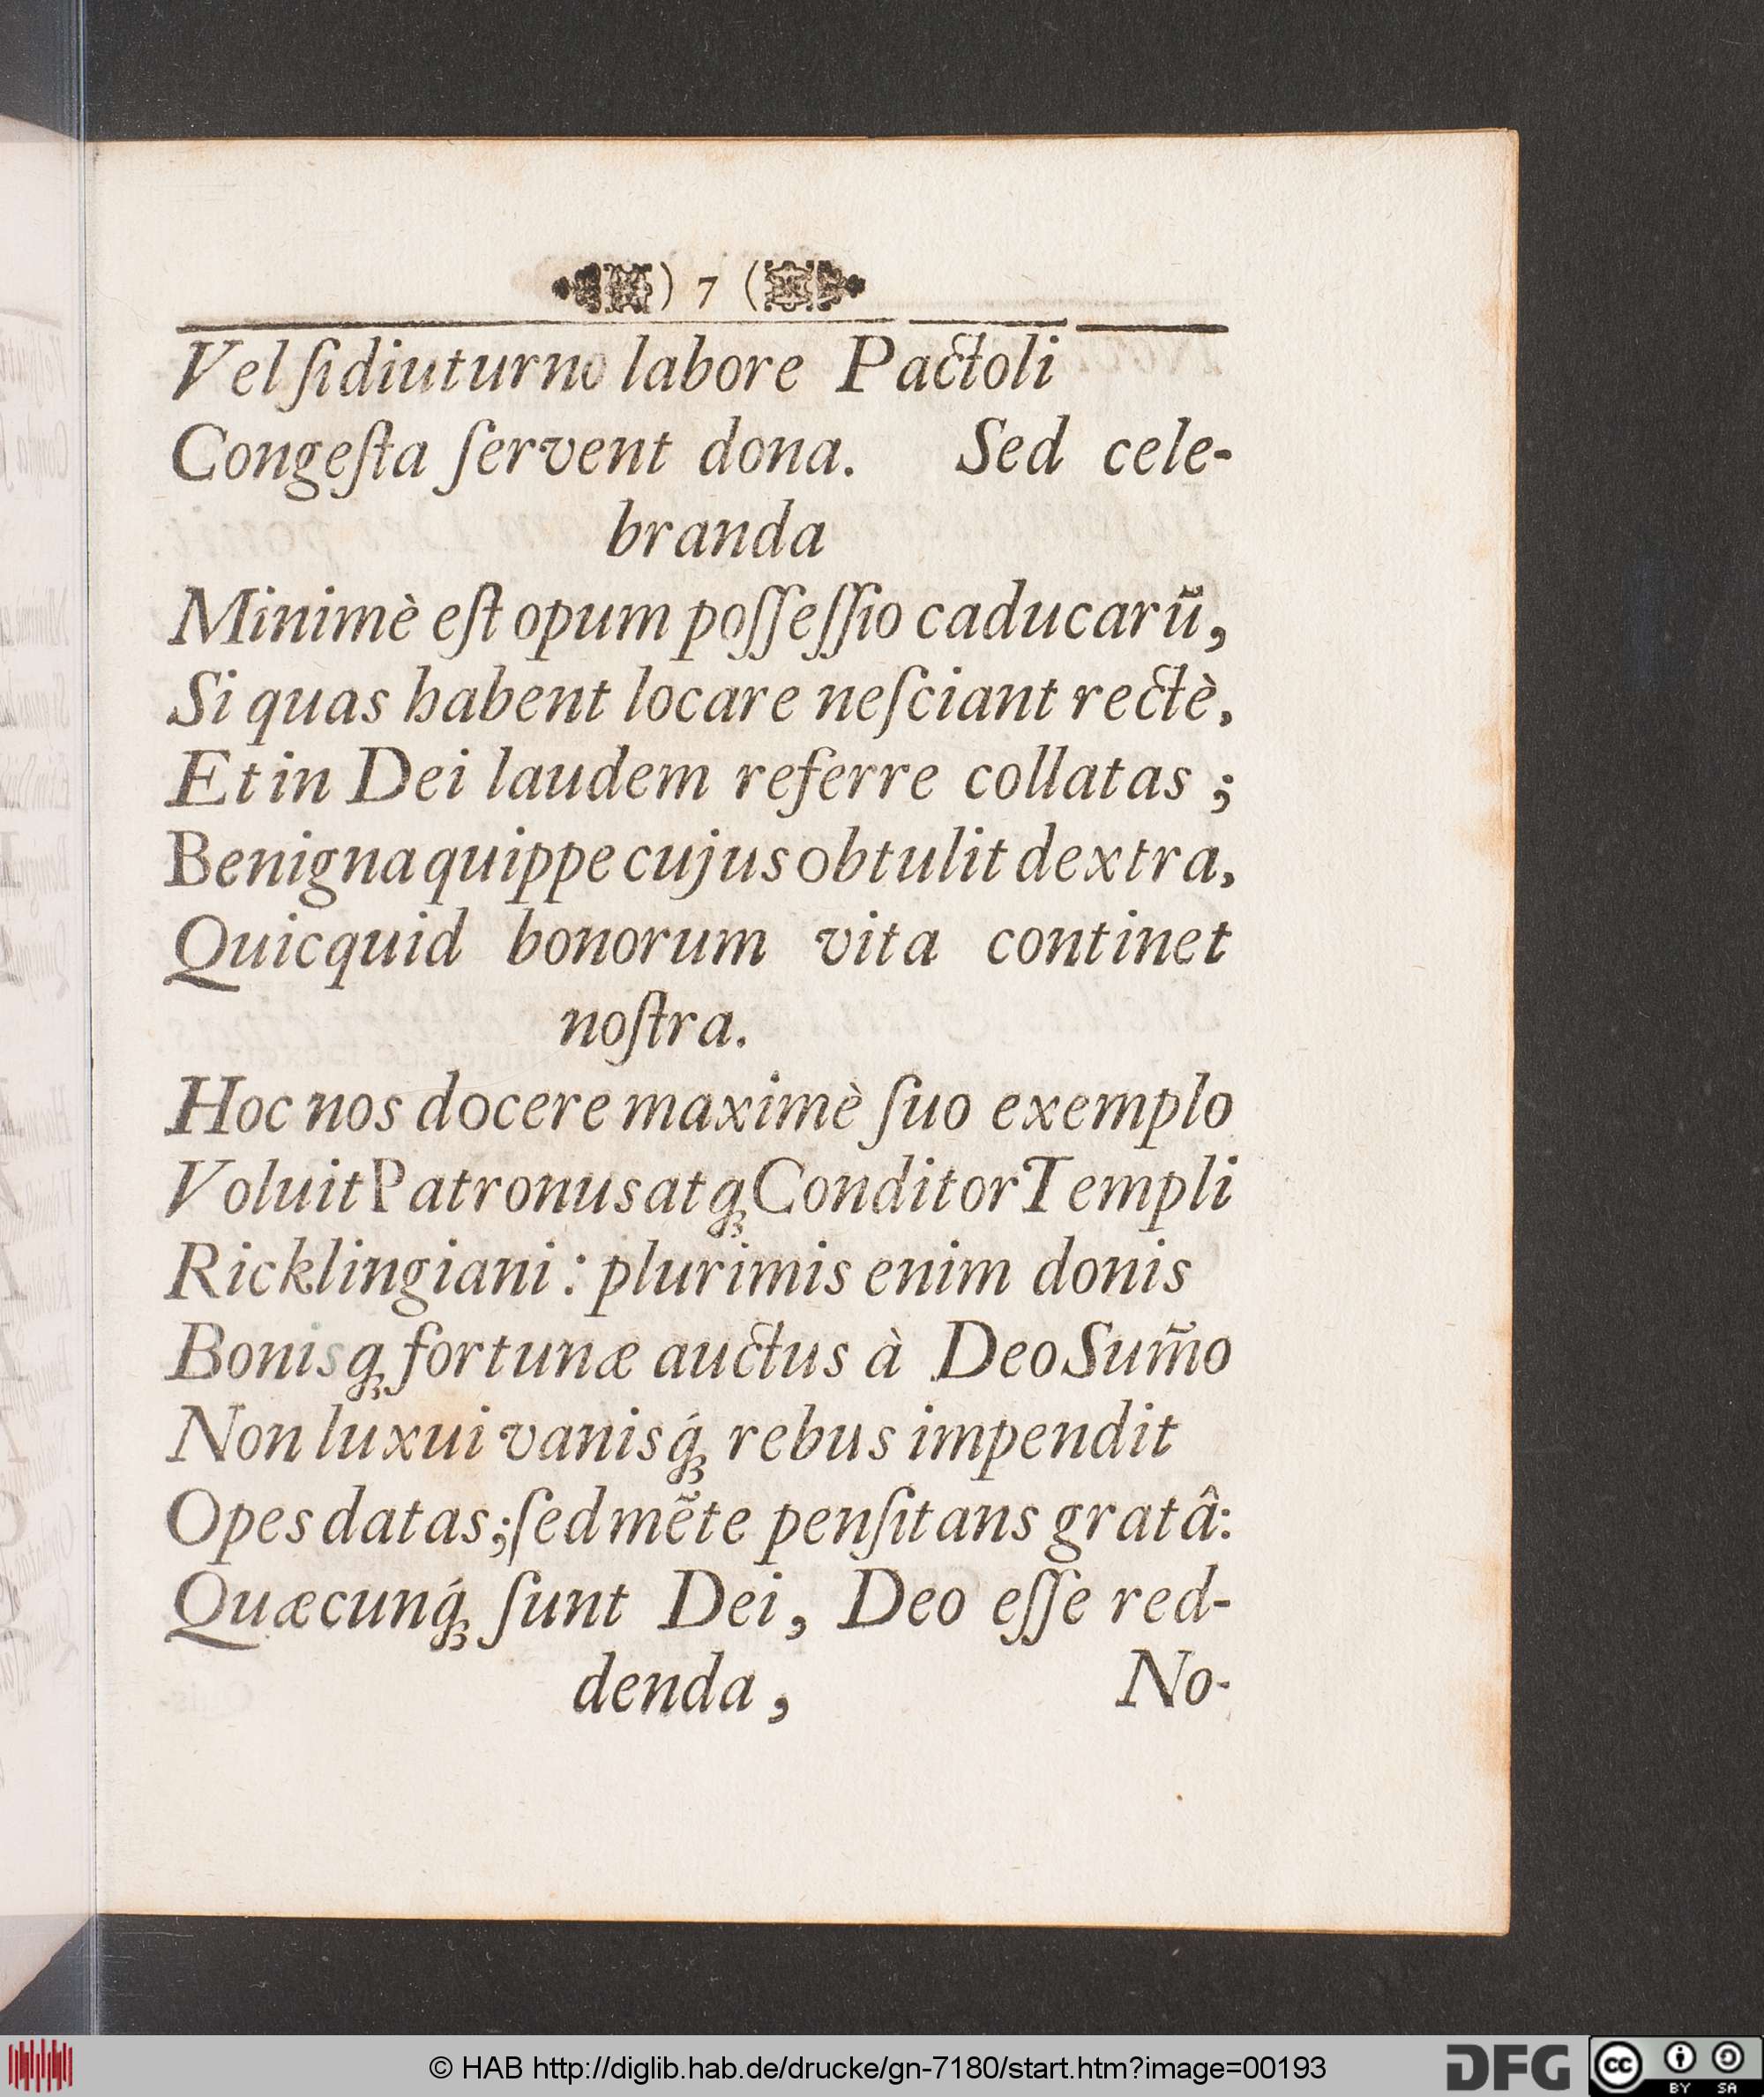 ) 7 (
Vel ſi diuturno labore Pactoli
Congeſta ſervent dona. Sed cele-
branda
Minimè eſt opum poſſeſſio caducarũ,
Si quas habent locare neſciant rectè,
Et in Dei laudem referre collatas ;
Benigna quippe cujus obtulit dextra,
Quicquid bonorum vita continet
noſtra.
Hoc nos docere maximè ſuo exemplo
Voluit Patronus atqꝫ Conditor Templi
Ricklingiani : plurimis enim donis
Bonisqꝫ fortunæ auctus à Deo Sum̃o
Non luxui vanisq́ꝫ rebus impendit
Opes datas; ſed mẽte penſitans gratâ:
Quæcunq́ꝫ ſunt Dei, Deo eſſe red-
denda, No-
© HAB http://diglib.hab.de/drucke/gn-7180/start.htm?image=00193
DFG
cc BY SA